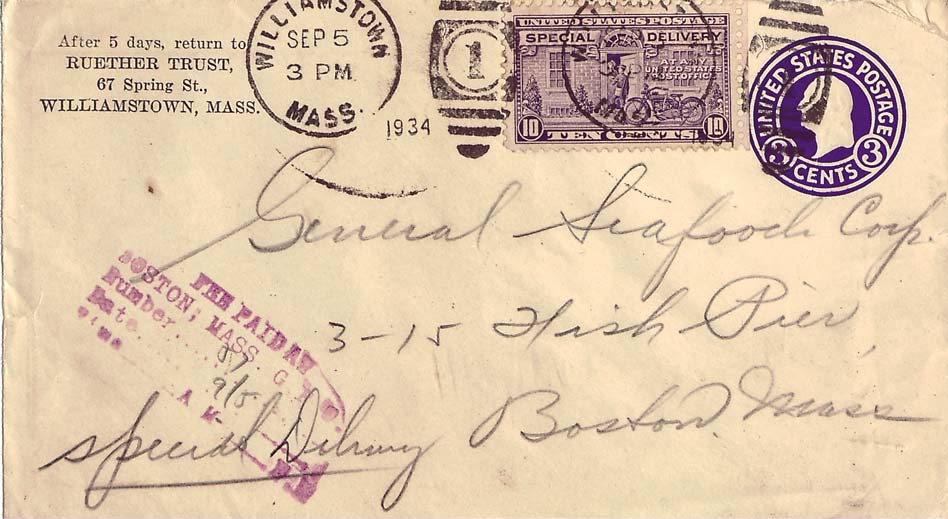 After 5 days, return to
RUETHER TRUST,
67 Spring St.,
WILLIAMSTOWN, MASS.
WILLIAMSTOWN
SEP 5
3 PM
MASS.
1934
1
UNITED STATES POSTAGE
SPECIAL DELIVERY
AT ANY
UNITED STATES
POST OFFICE
10 TEN CENTS 10
UNITED STATES POSTAGE
3 CENTS 3
General Seafood Corp.
3-15 Fish Pier
Boston, Mass
Special Delivery
FEE PAID AT
BOSTON, MASS. G.P.O.
Number
Date
9/5
Time
A M